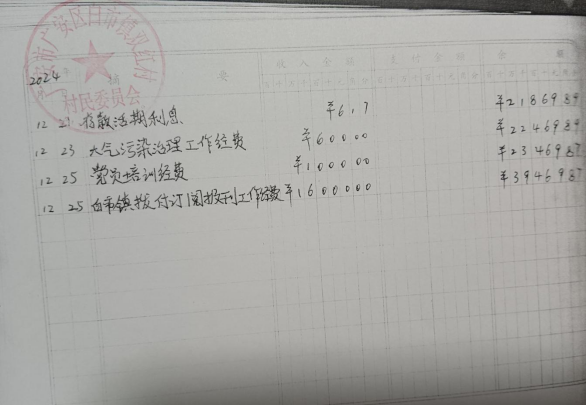 广安市广安区白市镇双红村
村民委员会
2024 摘 要 收入金额 支付金额 余 额
12 21 存款活期利息 ¥617 ¥2186987
12 23 大气污染治理工作经费 ¥60000 ¥2246987
12 25 党员培训经费 ¥100000 ¥2346987
12 25 白市镇拨付订阅报刊工作经费 ¥1600000 ¥3946987